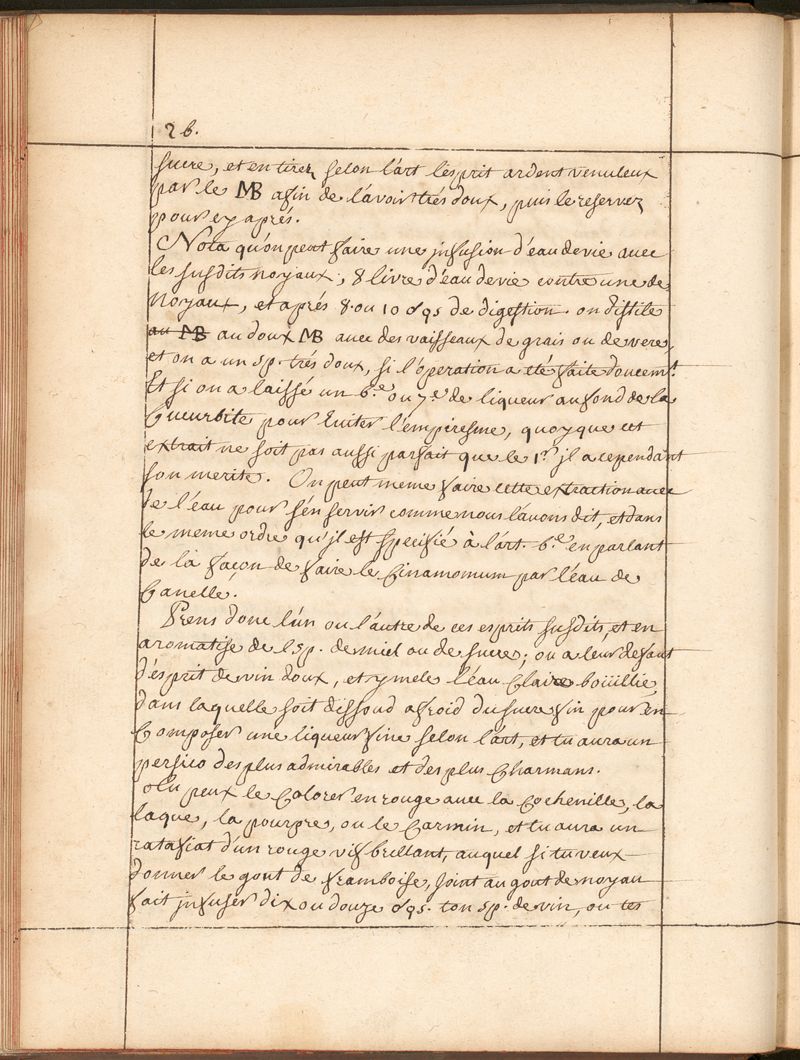 26.
sucre, et en tirez selon l'art l'ésprit ardent venuleux
par le MB afin de l'avoir trés doux, puis le reservez
pour cy aprés.
Nota qu'on peut faire une jnfusion d'eau de vie avec
les susdits noyaux, 8 livre d'eau de vie contre une de
Noyaux, et aprés 8. ou 10 de digestion. on distile
au MB au doux MB avec des vaisseaux de grais ou de vere,
et on a un sp. trés doux, si l'operation a eté faite doucemt.
Et si on a laissé un 6.e ou 7.e de liqueur au fond de la
Cucurbite pour Eviter l'empiresme, quoyque cet
extrait ne soit pas aussi parfait que le 1.r jl a cependant
son merite. On peut meme faire cette extraction avec
de l'eau pour s'én servir comme nous l'avons dit, et dans
le meme ordre qu'jl est specifié à l'art. 6.e en parlant
de la façon de faire le Cinamomum par l'éau de
Canelle.
Prens donc l'ún ou l'áutre de ces esprits susdits, et en
aromatise de l'sp. de miel ou de sucre; ou a leur defaut
d'ésprit de vin doux, et y mele l'éau Claire boüillie,
dans laquelle soit dissoud a froid du sucre fin pour en
Composer une liqueur fine selon l'árt, et tu aura un
persico des plus admirables et des plus Charmans.
Tu peux le Colorer en rouge avec la Cochenille, la
laque, la pourpre, ou le Carmin, et tu aura un
ratafiat d'un rouge vif brillant, auquel si tu veux
donner le gout de framboise, Joint au gout de noyau
fait jnfuser dix ou douze ton sp. de vin, ou tes